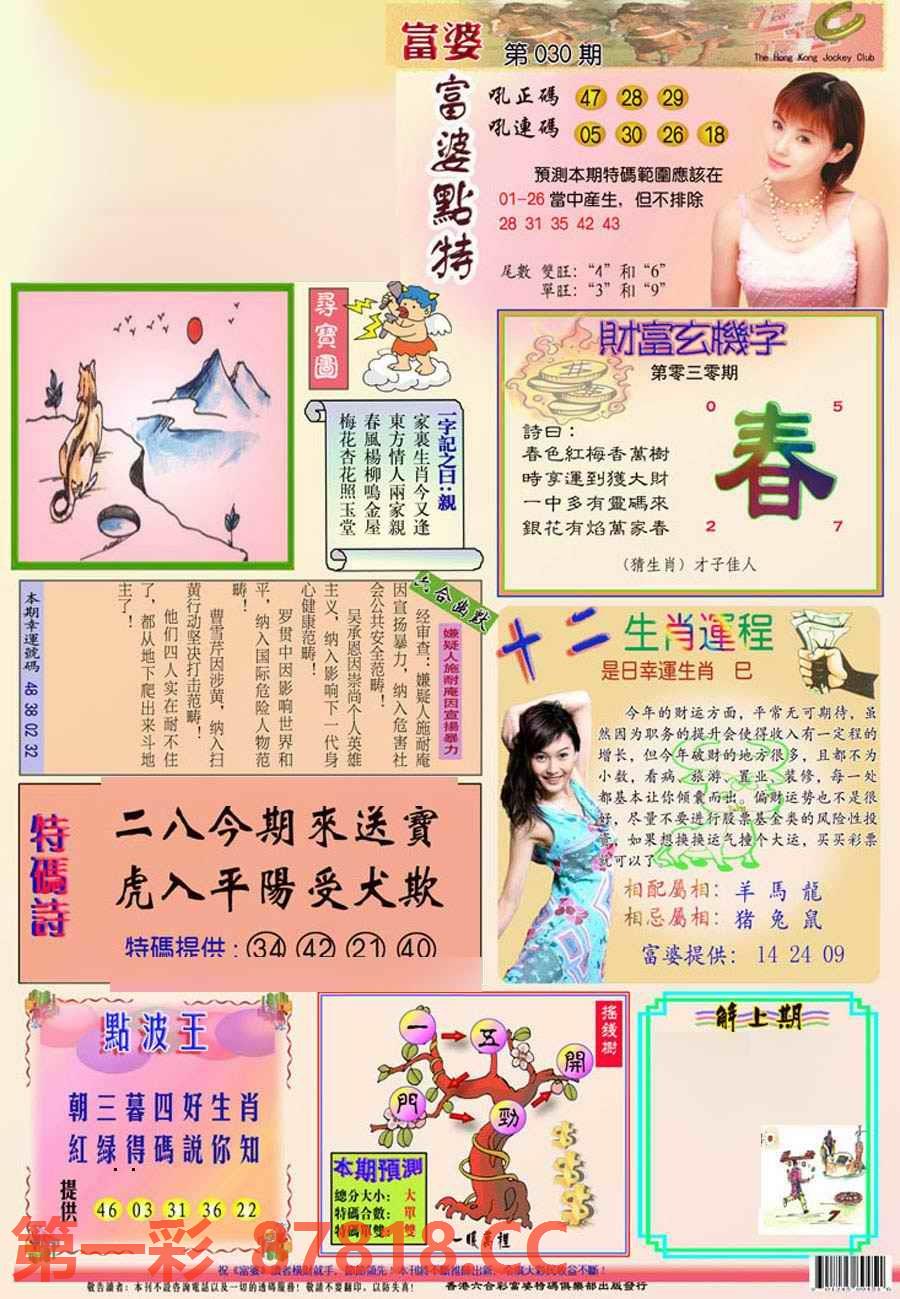 富婆 第030期
The Hong Kong Jockey Club
富婆點特
吼正碼 47 28 29
吼連碼 05 30 26 18
預測本期特碼範圍應該在
01-26當中産生，但不排除
28 31 35 42 43
尾數 雙旺：“4”和“6”
單旺：“3”和“9”
尋寶圖
一字記之曰：親
家裏生肖今又逢
東方情人兩家親
春風楊柳鳴金屋
梅花杏花照玉堂
財富玄機字
第零三零期
詩曰：
春色紅梅香萬樹
時享運到獲大財
一中多有靈碼來
銀花有焰萬家春
0 5
春
2 7
（猜生肖）才子佳人
六合幽默
嫌疑人施耐庵因宣揚暴力
经审查：嫌疑人施耐庵
因宣扬暴力，纳入危害社
会公共安全范畴！
吴承恩因崇尚个人英雄
主义，纳入影响下一代身
心健康范畴！
罗贯中因影响世界和
平，纳入国际危险人物范
畴！
曹雪芹因涉黄，纳入扫
黄行动坚决打击范畴！
他们四人实在耐不住
了，都从地下爬出来斗地
主了！
本期幸運號碼 48 38 02 32
十二生肖運程
是日幸運生肖 巳
今年的财运方面，平常无可期待，虽
然因为职务的提升会使得收入有一定程的
增长，但今年破财的地方很多，且都不为
小数，看病、旅游、置业、装修，每一处
都基本让你倾囊而出。偏财运势也不是很
好，尽量不要进行股票基金类的风险性投
资，如果想换换运气撞个大运，买买彩票
就可以了
相配屬相：羊 馬 龍
相忌屬相：猪 兔 鼠
富婆提供：14 24 09
特碼詩
二八今期來送寶
虎入平陽受犬欺
特碼提供：34 42 21 40
點波王
朝三暮四好生肖
紅緑得碼説你知
提供 46 03 31 36 22
搖錢樹
一 五
門 開
勁
本期預測
總分大小：大
特碼合數：單
特碼單雙：雙
解上期
第一彩 87818.CC
敬告讀者：本刊不設咨詢電話以及一切的透碼服務！敬請不要翻印，以防失真！
香港六合彩富婆特碼俱樂部出版發行